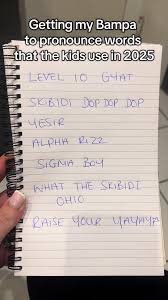 Getting my Bampa
to pronounce words
that the kids use in 2025
LEVEL 10 GYAT
SKIBIDI DOP DOP DOP
YESIR
ALPHA RIZZ
SIGMA BOY
WHAT THE SKIBIDI
OHIO
RAISE YOUR YAYAYA